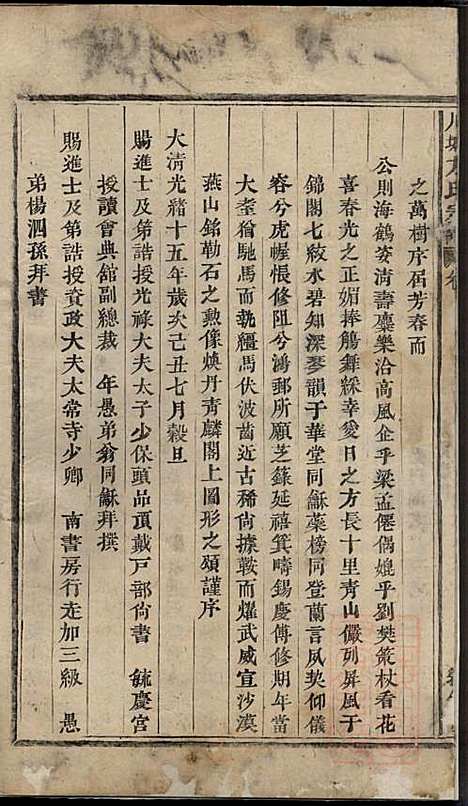 之萬樹序居芳春而
公則海鶴姿清壽麋樂洽高風企乎梁孟僊偶媲乎劉樊策杖看花
喜春光之正媚捧觴舞綵幸愛日之方長十里青山儼列屏風于
錦閣七絃水碧知深琴韻于華堂同龢藥榜同登蘭言夙契仰儀
容兮虎幄悵修阻兮鴻郵所願芝籙延禧箕疇錫慶傳修期年當
大耋猶馳馬而執韁馬伏波齒近古稀尙據鞍而燿武威宣沙漠
燕山銘勒石之勲像煥丹青麟閣上圖形之頌謹序
大清光緒十五年歲次己丑七月榖旦
賜進士及第誥授光祿大夫太子少保頭品頂戴戸部尙書 毓慶宮
授讀會典館副總裁 年愚弟翁同龢拜撰
賜進士及第誥授資政大夫太常寺少卿 南書房行走加三級 愚
弟楊泗孫拜書